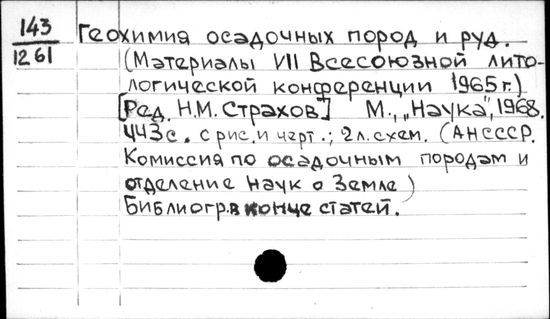 143 Геохимия осадочных пород и руд.
1261 (Материалы VII Всесоюзной лито-
логической конференции 1965 г.)
[Ред. Н.М. Страхов] М., „Наука", 1968.
443 с. с рис. и черт.; 2 л. схем. (АН СССР.
Комиссия по осадочным породам и
отделение наук о Земле)
Библиогр. в конце статей.